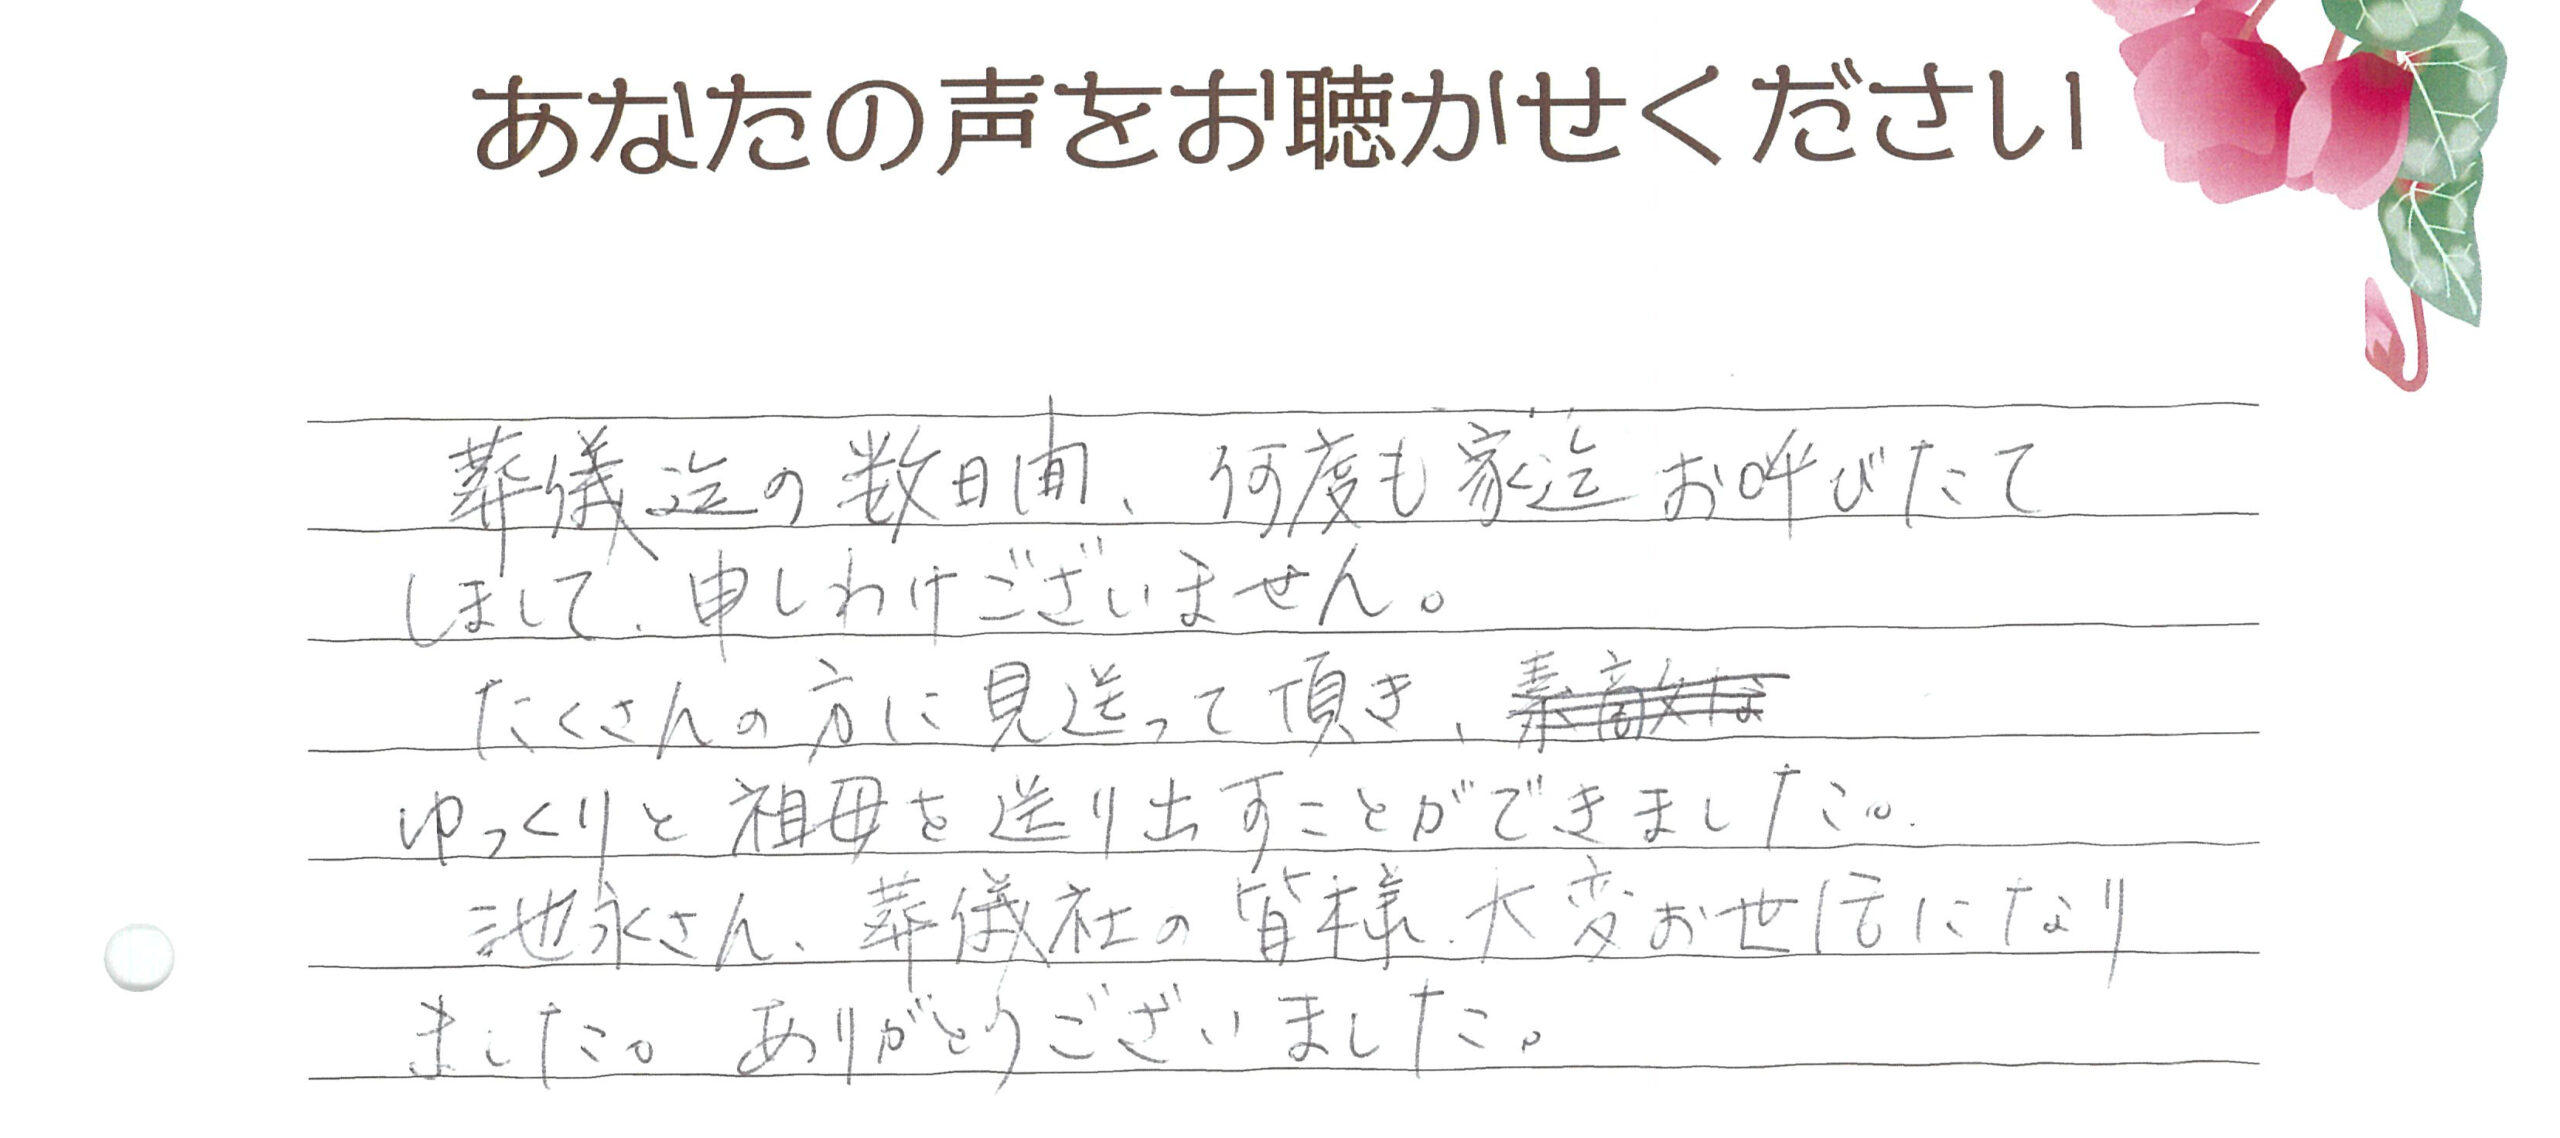 あなたの声をお聴かせください
葬儀迄の数日間、何度も家迄お呼びたて
しまして、申しわけございません。
たくさんの方に見送って頂き、素敵な
ゆっくりと祖母を送り出すことができました。
池永さん、葬儀社の皆様、大変お世話になり
ました。ありがとうございました。